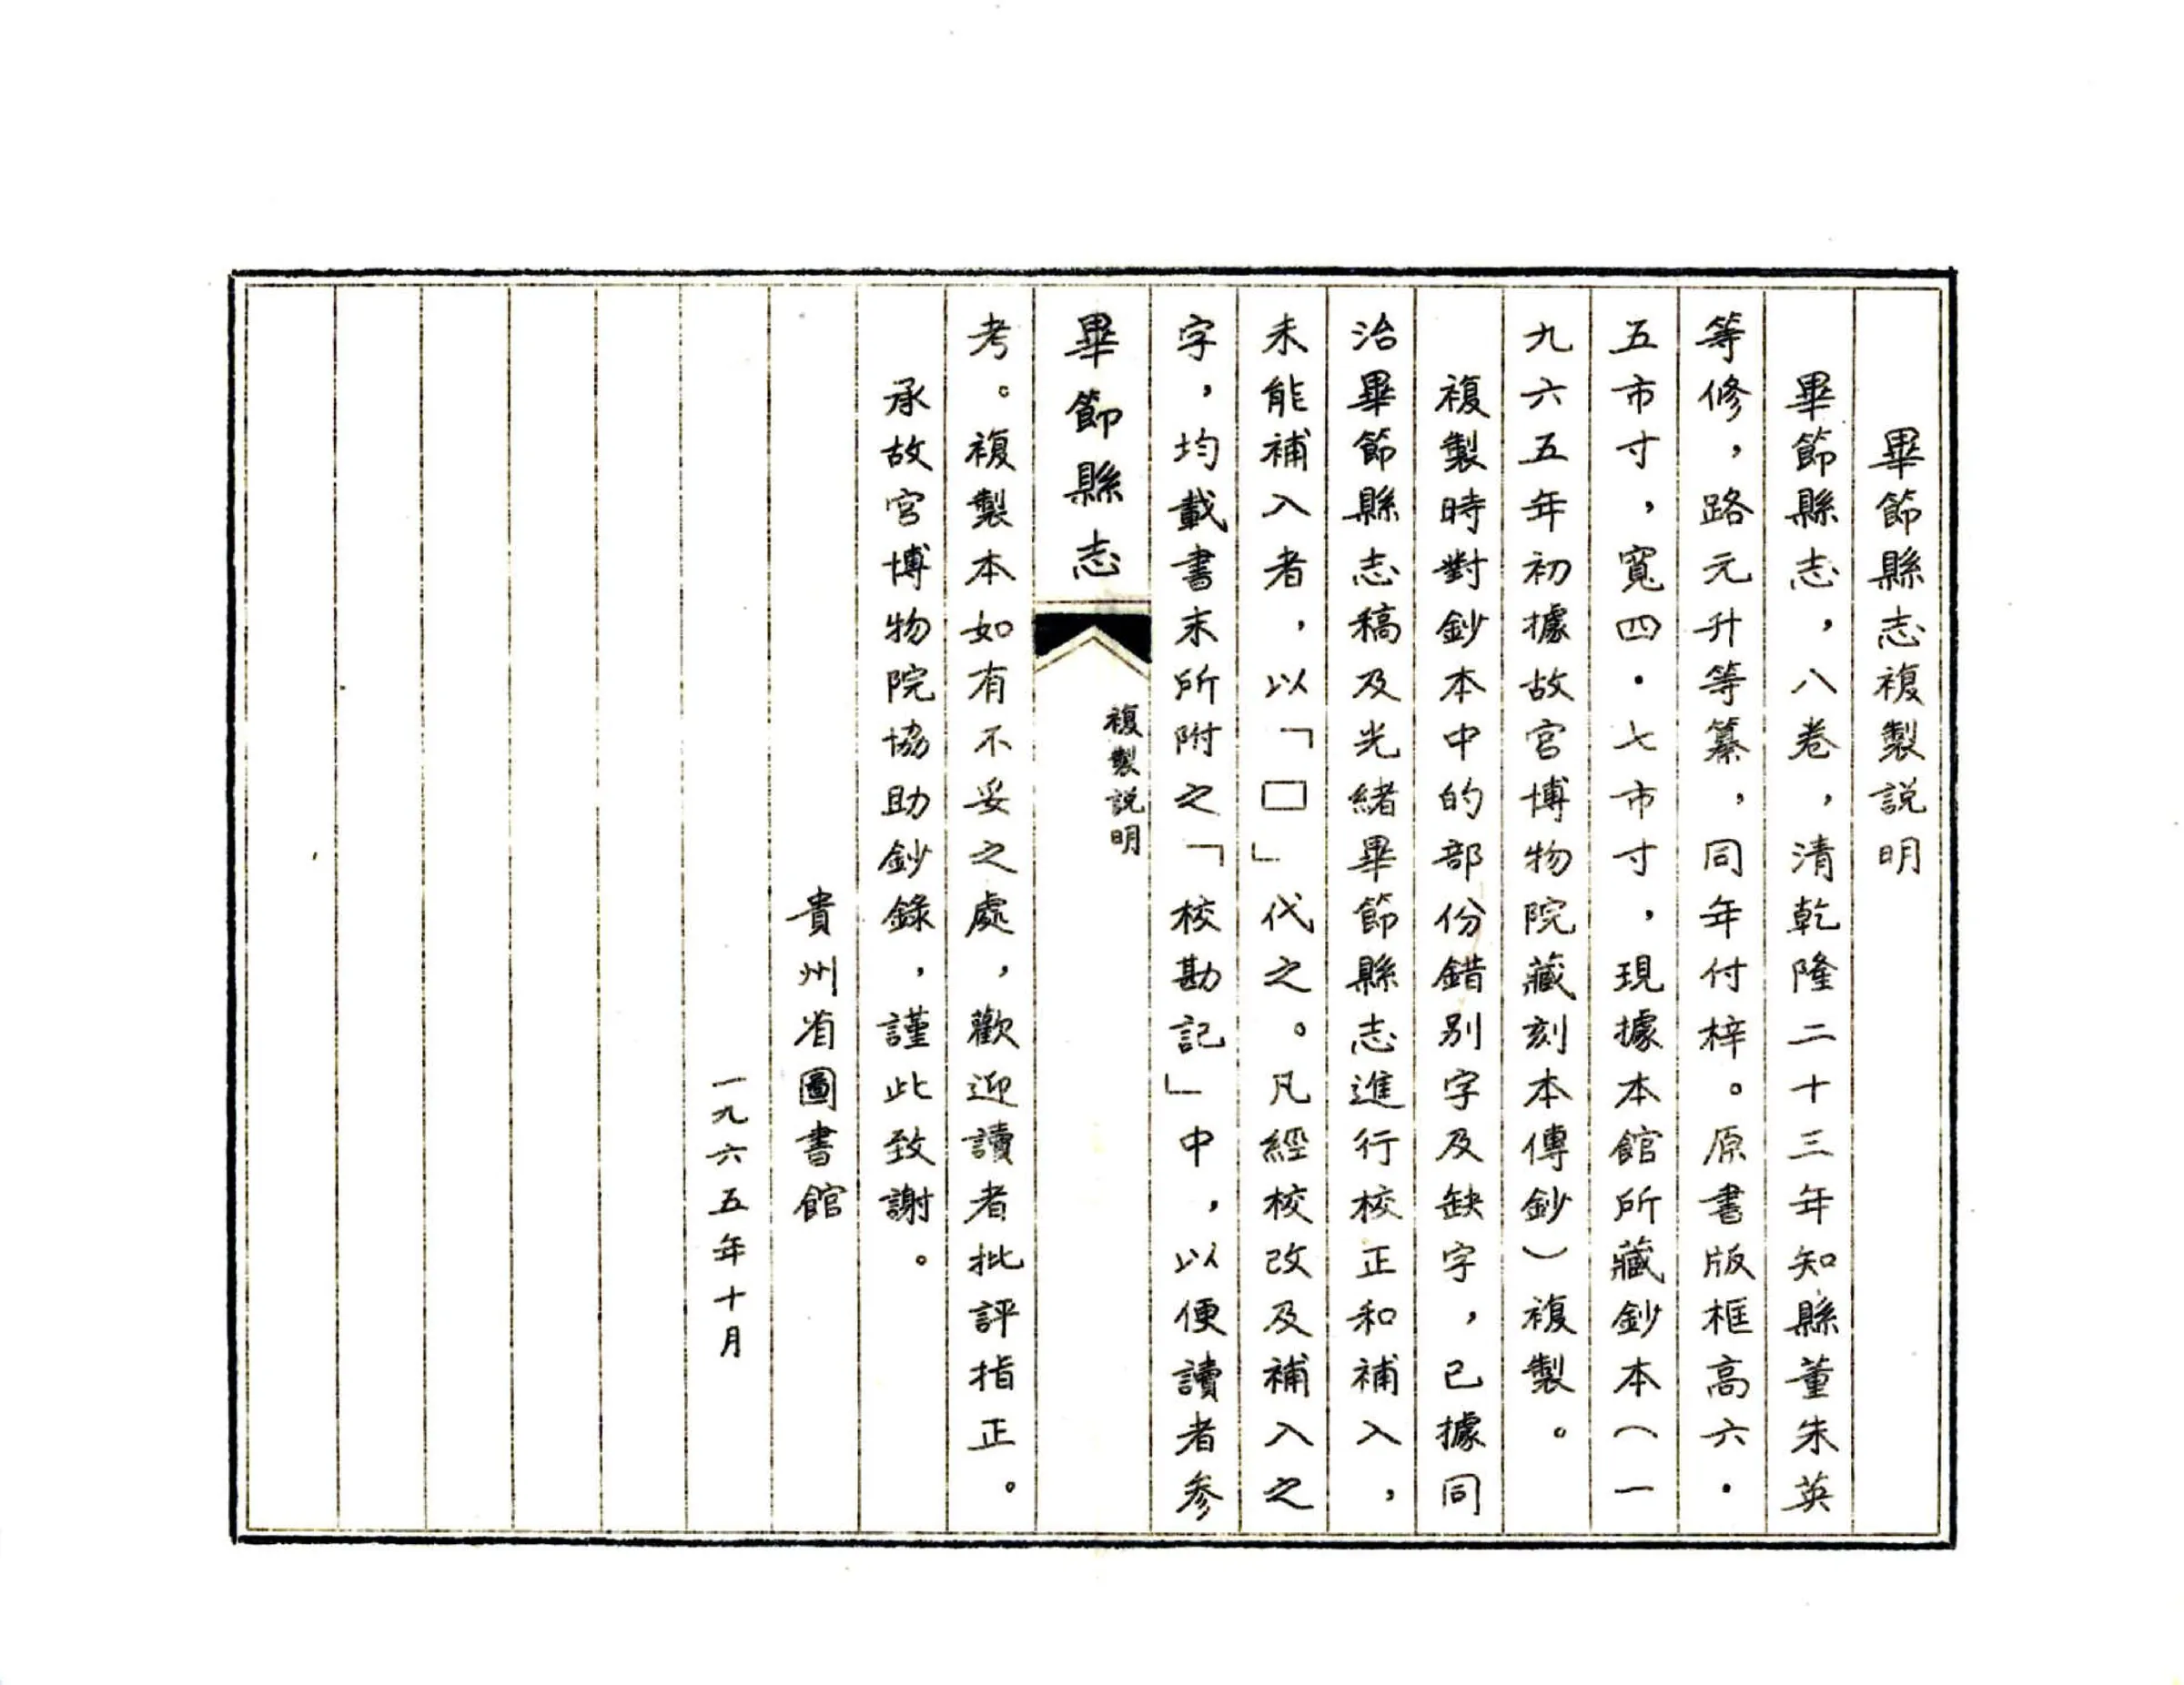 畢節縣志複製説明
畢節縣志，八卷，清乾隆二十三年知縣董朱英
等修，路元升等纂，同年付梓。原書版框高六·
五市寸，寬四·七市寸，現據本館所藏鈔本（一
九六五年初據故宮博物院藏刻本傳鈔）複製。
複製時對鈔本中的部份錯別字及缺字，已據同
治畢節縣志稿及光緒畢節縣志進行校正和補入，
未能補入者，以「□」代之。凡經校改及補入之
字，均載書末所附之「校勘記」中，以便讀者参
畢節縣志
複製説明
考。複製本如有不妥之處，歡迎讀者批評指正。
承故宮博物院協助鈔錄，謹此致謝。
貴州省圖書館
一九六五年十月